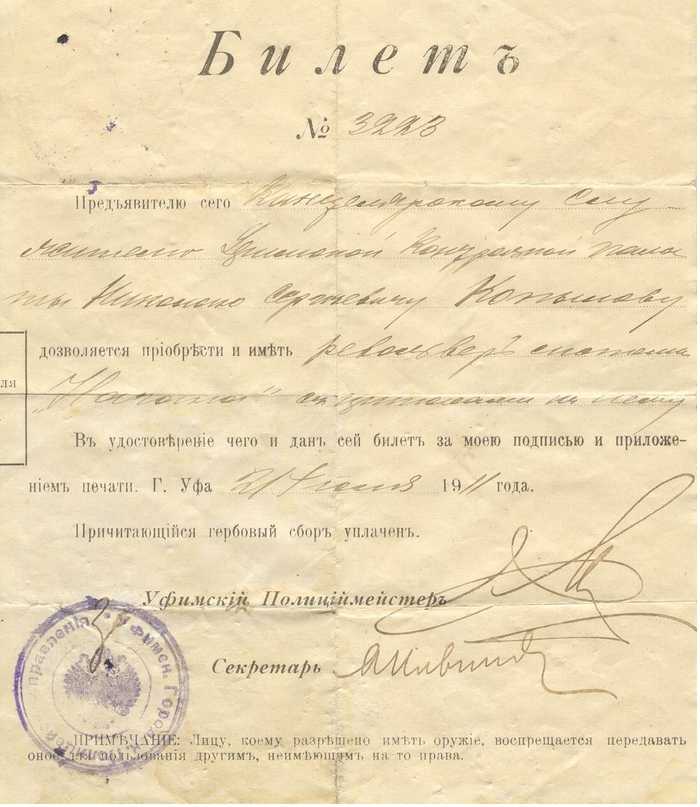 Билетъ
№ 3223
Предъявителю сего Канцелярскому слу-
жителю Уфимской Контрольной пала-
ты Сергѣевичу Копылову
дозволяется пріобрѣсти и имѣть револьверъ системы
"Наганъ" съ патронами къ нему
Въ удостовѣреніе чего и данъ сей билетъ за моею подписью и приложе-
ніемъ печати. Г. Уфа 21 1911 года.
Причитающійся гербовый сборъ уплаченъ.
Уфимскій Полиціймейстеръ
Секретарь
Уфимск. Город. Полиц. правленія
ля
ПРИМѢЧАНІЕ: Лицу, коему разрѣшено имѣть оружіе, воспрещается передавать
оное для пользованія другимъ, неимѣющимъ на то права.